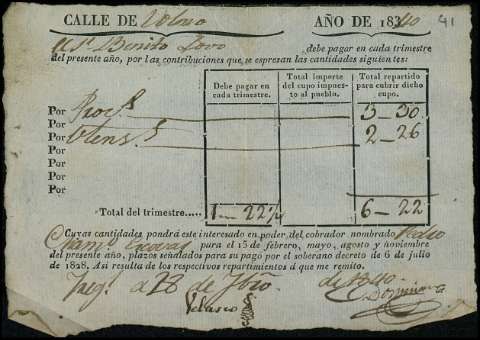 CALLE DE
AÑO DE 1840 41
Dn. Benito debe pagar en cada trimestre
del presente año, por las contribuciones que se espresan las cantidades siguientes:
Debe pagar en cada trimestre. Total importe del cupo impuesto al pueblo. Total repartido para cubrir dicho cupo.
Por 3-30
Por Utens.s 2-26
Por
Por
Por
Por
Total del trimestre..... 1-22½ 6-22
Cuyas cantidades pondrá este interesado en poder del cobrador nombrado Pedro
para el 15 de febrero, mayo, agosto y noviembre
del presente año, plazos señalados para su pago por el soberano decreto de 6 de julio
de 1828. Asi resulta de los respectivos repartimientos á que me remito.
de de 1840
Velasco